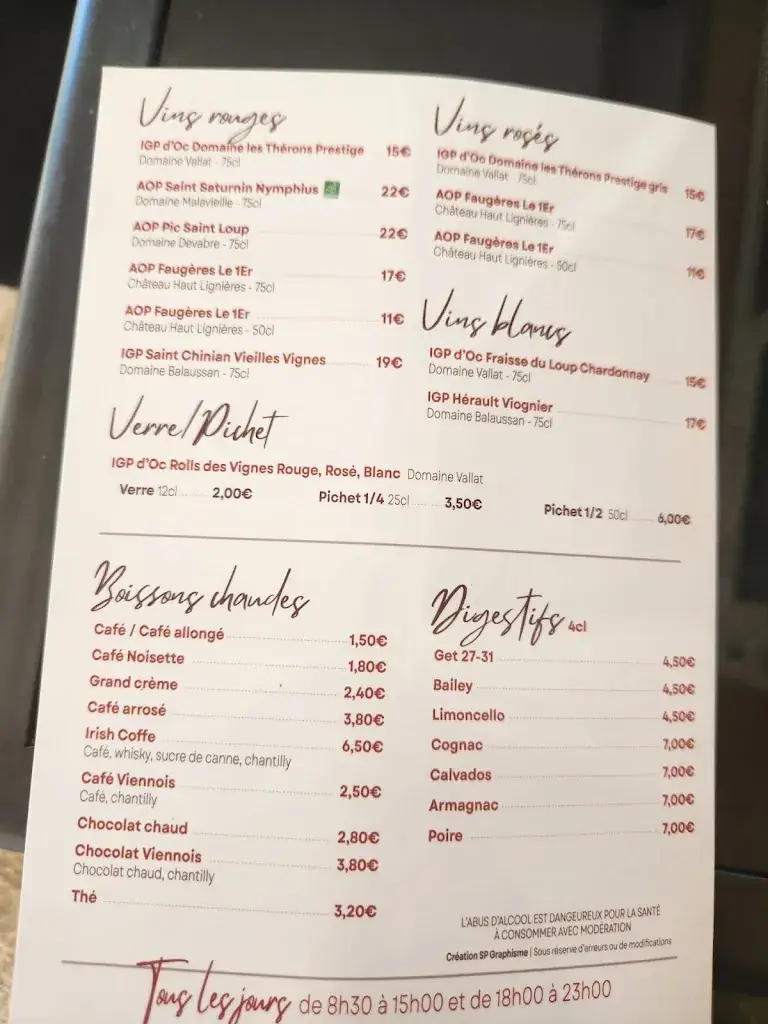 Vins rouges
IGP d'Oc Domaine les Thérons Prestige 15€
Domaine Vallat - 75cl
AOP Saint Saturnin Nymphius 22€
Domaine Malavieille - 75cl
AOP Pic Saint Loup 22€
Domaine Devabre - 75cl
AOP Faugères Le 1Er 17€
Château Haut Lignières - 75cl
AOP Faugères Le 1Er 11€
Château Haut Lignières - 50cl
IGP Saint Chinian Vieilles Vignes 19€
Domaine Balaussan - 75cl
Vins rosés
IGP d'Oc Domaine les Thérons Prestige gris 15€
Domaine Vallat - 75cl
AOP Faugères Le 1Er
Château Haut Lignières - 75cl 17€
AOP Faugères Le 1Er
Château Haut Lignières - 50cl 11€
Vins blancs
IGP d'Oc Fraisse du Loup Chardonnay 15€
Domaine Vallat - 75cl
IGP Hérault Viognier 17€
Domaine Balaussan - 75cl
Verre/Pichet
IGP d'Oc Rolls des Vignes Rouge, Rosé, Blanc Domaine Vallat
Verre 12cl 2,00€ Pichet 1/4 25cl 3,50€ Pichet 1/2 50cl 6,00€
Boissons chaudes
Café / Café allongé 1,50€
Café Noisette 1,80€
Grand crème 2,40€
Café arrosé 3,80€
Irish Coffe 6,50€
Café, whisky, sucre de canne, chantilly
Café Viennois 2,50€
Café, chantilly
Chocolat chaud 2,80€
Chocolat Viennois 3,80€
Chocolat chaud, chantilly
Thé 3,20€
Digestifs 4cl
Get 27-31 4,50€
Bailey 4,50€
Limoncello 4,50€
Cognac 7,00€
Calvados 7,00€
Armagnac 7,00€
Poire 7,00€
L'ABUS D'ALCOOL EST DANGEUREUX POUR LA SANTÉ
À CONSOMMER AVEC MODÉRATION
Création SP Graphisme | Sous réserve d'erreurs ou de modifications
Tous les jours de 8h30 à 15h00 et de 18h00 à 23h00